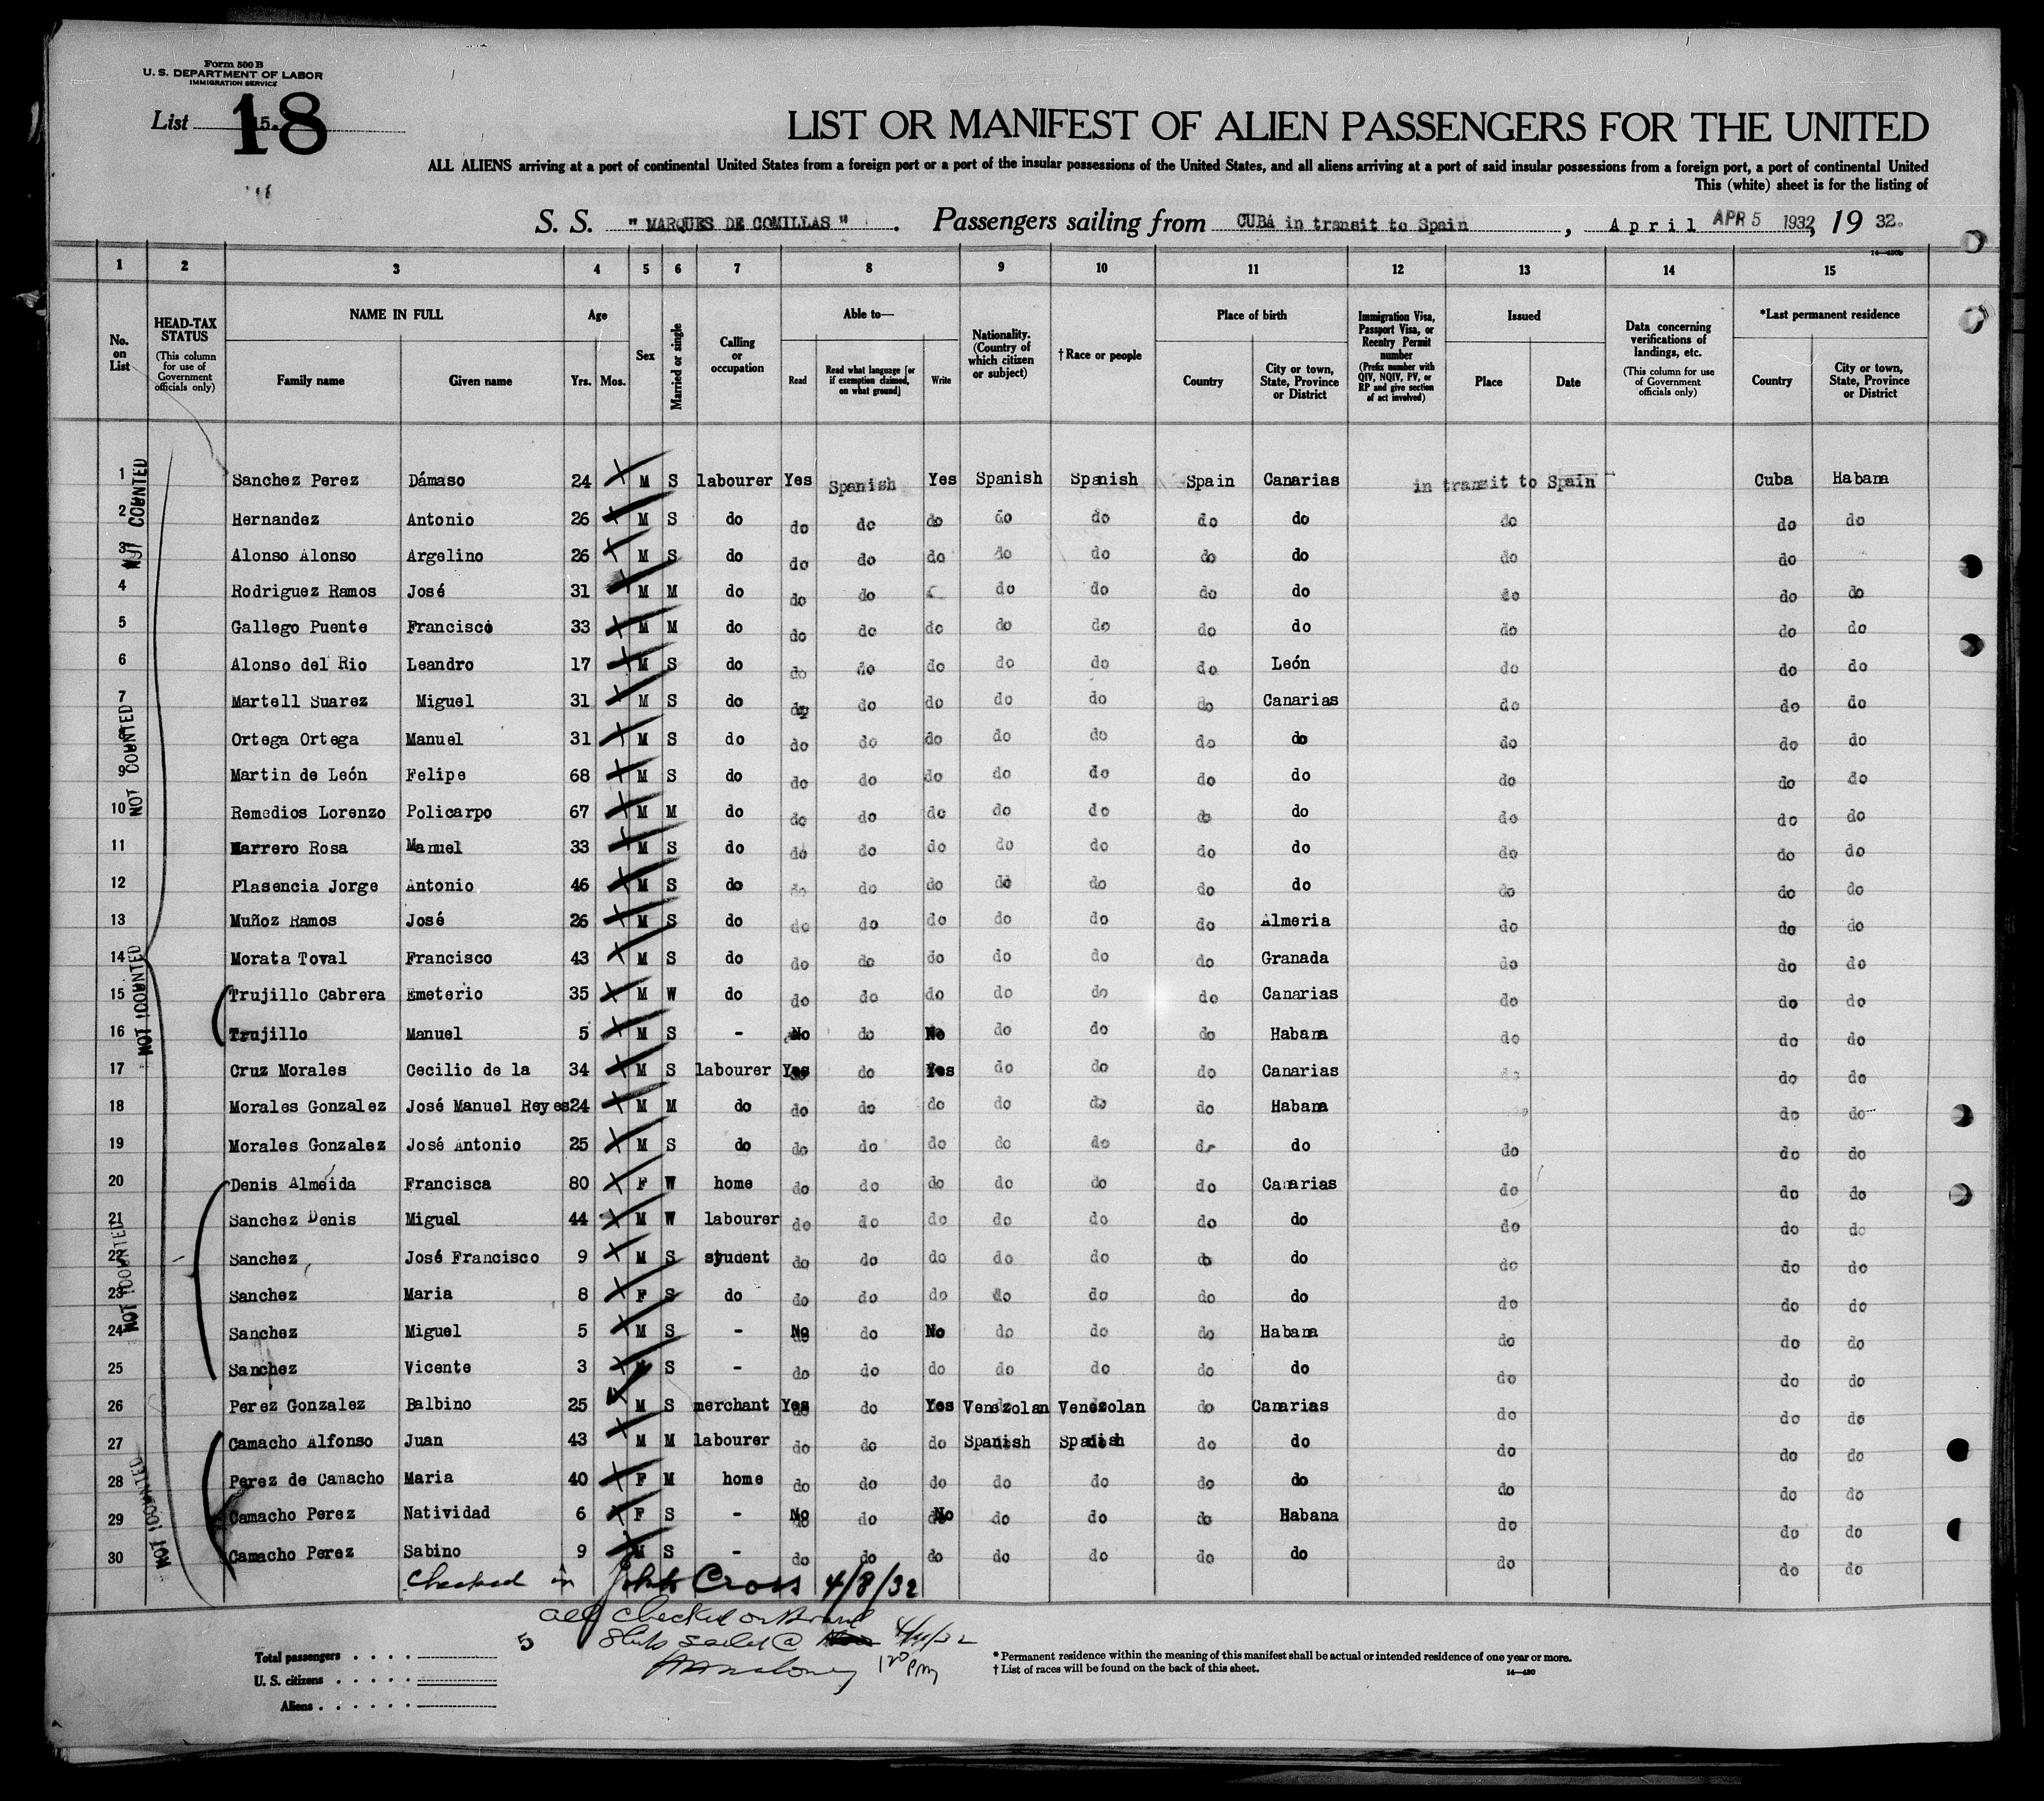 Form 500 B
U. S. DEPARTMENT OF LABOR
IMMIGRATION SERVICE
List 15.
18
LIST OR MANIFEST OF ALIEN PASSENGERS FOR THE UNITED
ALL ALIENS arriving at a port of continental United States from a foreign port or a port of the insular possessions of the United States, and all aliens arriving at a port of said insular possessions from a foreign port, a port of continental United
This (white) sheet is for the listing of
S. S. "MARQUES DE COMILLAS". Passengers sailing from CUBA in transit to Spain, April APR 5 1932, 19 32.
14—430b
1 2 3 4 5 6 7 8 9 10 11 12 13 14 15
No. on List
HEAD-TAX STATUS (This column for use of Government officials only)
NAME IN FULL Family name Given name
Age Yrs. Mos.
Sex
Married or single
Calling or occupation
Able to— Read Read what language [or if exemption claimed, on what ground] Write
Nationality. (Country of which citizen or subject)
† Race or people
Place of birth Country City or town, State, Province or District
Immigration Visa, Passport Visa, or Reentry Permit number (Prefix number with QIV, NQIV, PV, or RP and give section of act involved)
Issued Place Date
Data concerning verifications of landings, etc. (This column for use of Government officials only)
*Last permanent residence Country City or town, State, Province or District
1 Sanchez Perez Dámaso 24 M S labourer Yes Spanish Yes Spanish Spanish Spain Canarias in transit to Spain Cuba Habana
2 Hernandez Antonio 26 M S do do do do do do do do do do do
3 Alonso Alonso Argelino 26 M S do do do do do do do do do do
4 Rodriguez Ramos José 31 M M do do do do do do do do do do
5 Gallego Puente Francisco 33 M M do do do do do do do do do do do
6 Alonso del Rio Leandro 17 M S do do do do do do do León do do do
7 Martell Suarez Miguel 31 M S do do do do do do do Canarias do do do
8 Ortega Ortega Manuel 31 M S do do do do do do do do do do do
9 Martin de León Felipe 68 M S do do do do do do do do do do do
10 Remedios Lorenzo Policarpo 67 M M do do do do do do do do do do do
11 Marrero Rosa Manuel 33 M S do do do do do do do do do do do
12 Plasencia Jorge Antonio 46 M S do do do do do do do do do do do
13 Muñoz Ramos José 26 M S do do do do do do do Almeria do do do
14 Morata Toval Francisco 43 M S do do do do do do do Granada do do do
15 Trujillo Cabrera Emeterio 35 M W do do do do do do do Canarias do do do
16 Trujillo Manuel 5 M S - No do No do do do Habana do do do
17 Cruz Morales Cecilio de la 34 M S labourer Yes do Yes do do do Canarias do do do
18 Morales Gonzalez José Manuel Reyes 24 M M do do do do do do do Habana do do do
19 Morales Gonzalez José Antonio 25 M S do do do do do do do do do do do
20 Denis Almeida Francisca 80 F W home do do do do do do Canarias do do do
21 Sanchez Denis Miguel 44 M W labourer do do do do do do do do do do
22 Sanchez José Francisco 9 M S student do do do do do do do do do do
23 Sanchez Maria 8 F S do do do do do do do do do do do
24 Sanchez Miguel 5 M S - No do No do do do Habana do do do
25 Sanchez Vicente 3 M S - do do do do do do do do do do
26 Perez Gonzalez Balbino 25 M S merchant Yes do Yes Venezolan Venezolan do Canarias do do do
27 Camacho Alfonso Juan 43 M M labourer do do do Spanish Spanish do do do do do
28 Perez de Camacho Maria 40 F M home do do do do do do do do do do
29 Camacho Perez Natividad 6 F S - No do No do do do Habana do do do
30 Camacho Perez Sabino 9 M S - do do do do do do do do do do
NOT COUNTED
NOT COUNTED
NOT COUNTED
NOT COUNTED
NOT COUNTED
Checked in John Cross 4/8/32
all checked on Board
5 Ship sailed @ 4/11/32
120 PM
Total passengers
U. S. citizens
Aliens
* Permanent residence within the meaning of this manifest shall be actual or intended residence of one year or more.
† List of races will be found on the back of this sheet.
14—430